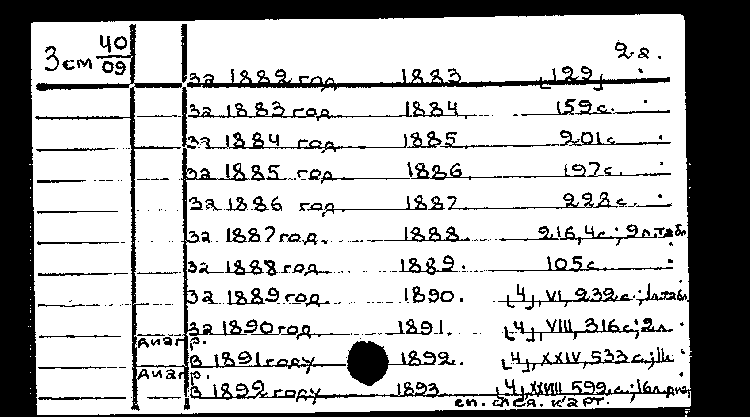 3 см 40/09 2а.
за 1882 год 1883 [129]
за 1883 год 1884. 159 с.
за 1884 год 1885 201 с.
за 1885 год 1886. 197 с.
за 1886 год. 1887. 228 с.
за 1887 год. 1888. 216, 4 с.; 9 л. табл.
за 1888 год. 1889. 105 с.
за 1889 год 1890. [4], VI, 232 с.; 1 л. табл.
за 1890 год 1891. [4], VIII, 316 с.; 2 л.
диагр.
в 1891 году 1892. [4], XXIV, 533 с.;
диагр.
в 1892 году 1893. [4], XXVIII 599 с.; 16 л.
см. след. карт.